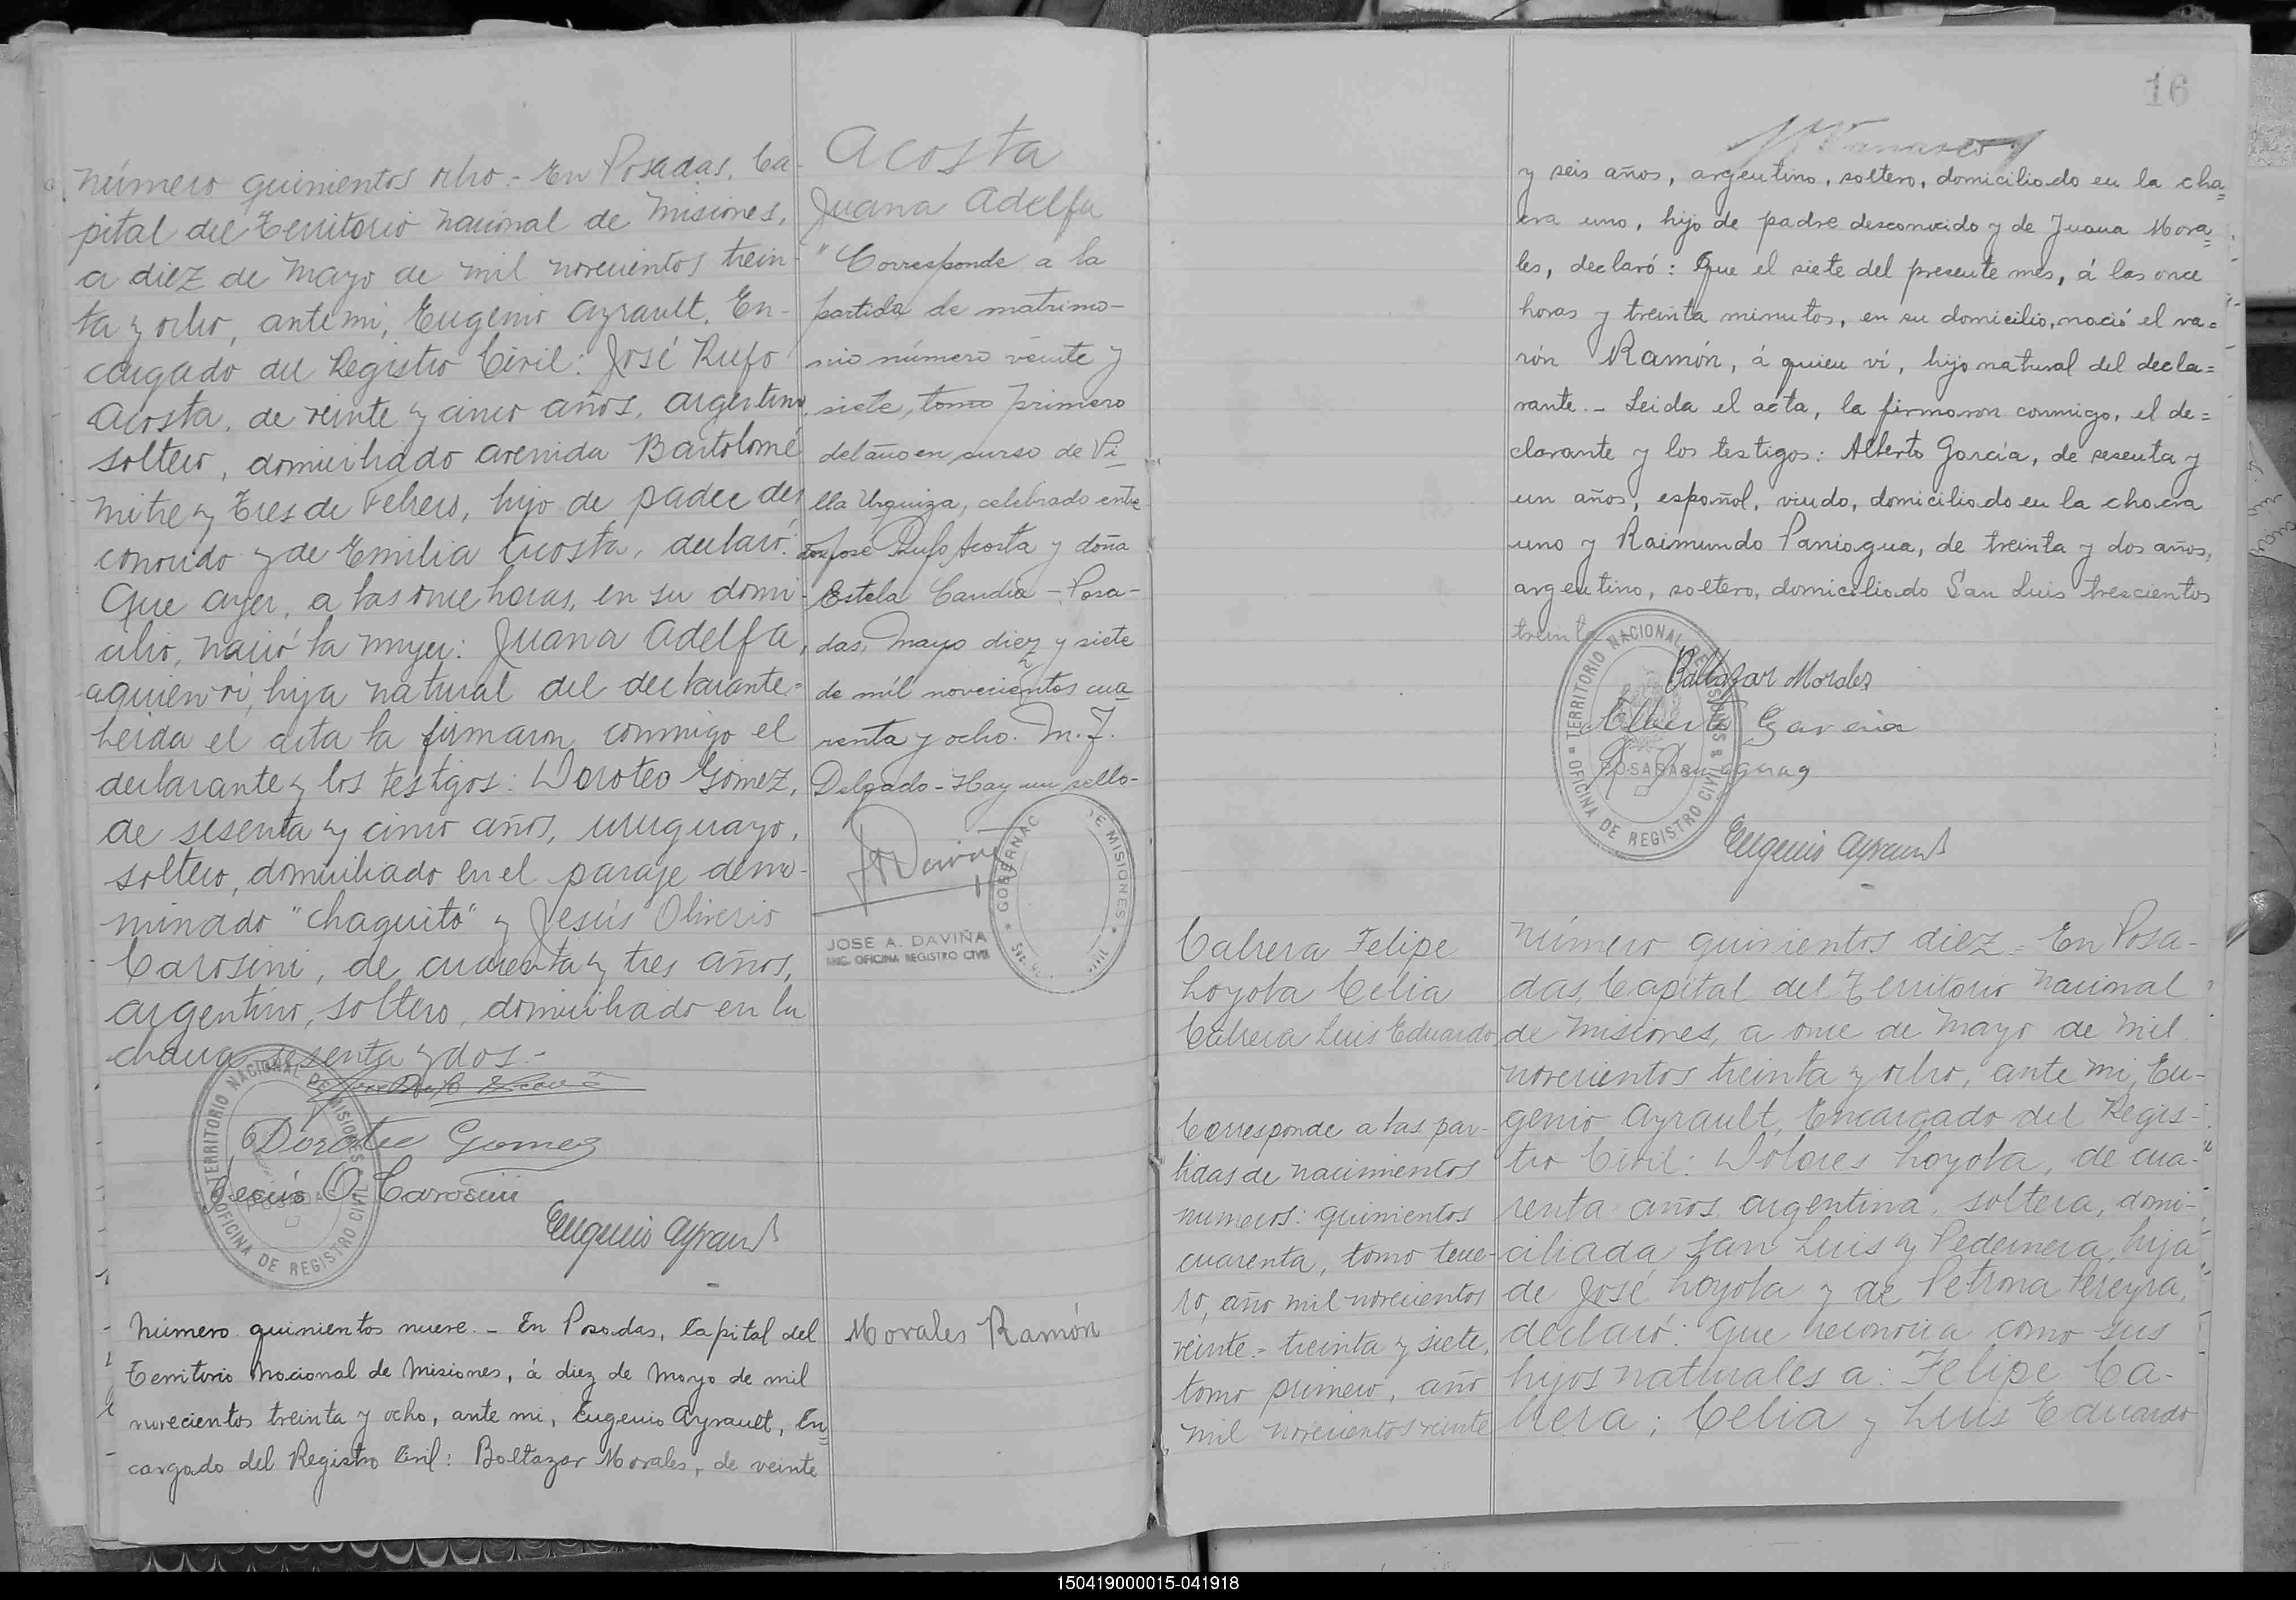 número quinientos ocho.- En Posadas, Ca-
pital del Territorio nacional de misiones,
a diez de mayo de mil novecientos trein-
ta y ocho, ante mi, Eugenio Ayrault, En-
cargado del Registro Civil: José Rufo
Acosta, de veinte y cinco años, argentino,
soltero, domiciliado avenida Bartolomé
mitre y Tres de Febrero, hijo de padre des
conocido y de Emilia Acosta, declaró:
Que ayer, a las once horas, en su domi-
cilio, nació la mujer: Juana Adelfa,
a quien vi, hija natural del declarante.-
Leida el acta la firmaron conmigo el
declarante y los testigos: Doroteo Gómez,
de sesenta y cinco años, uruguayo,
soltero, domiciliado en el paraje deno-
minado "Chaquito" y Jesús Oliverio
Carosini, de cuarenta y tres años,
argentino, soltero, domiciliado en la
chacra sesenta y dos.-
Doroteo Gomez
Jesús O. Carosini
Eugenio Ayrault
TERRITORIO NACIONAL DE MISIONES
POSADAS
OFICINA DE REGISTRO CIVIL
Acosta
Juana Adelfa
"Corresponde a la
partida de matrimo-
nio número veinte y
siete, tomo primero
del año en curso de Vi-
lla Urquiza, celebrado entre
don José Rufo Acosta y doña
Estela Candia - Posa-
das, Mayo diez y siete
de mil novecientos cua-
renta y ocho. M. J.
Delgado - Hay un sello-
GOBERNAC
E MISIONES
JOSE A. DAVIÑA
ENC. OFICINA REGISTRO CIVIL
Número quinientos nueve.- En Posadas, Capital del
Territorio Nacional de Misiones, á diez de Mayo de mil
novecientos treinta y ocho, ante mi, Eugenio Ayrault, En=
cargado del Registro Civil: Baltazar Morales, de veinte
Morales Ramón
16
y seis años, argentino, soltero, domiciliado en la cha=
cra uno, hijo de padre desconocido y de Juana Mora=
les, declaró: Que el siete del presente mes, á las once
horas y treinta minutos, en su domicilio, nació el va=
rón Ramón, á quien ví, hijo natural del decla=
rante.- Leida el acta, la firmaron conmigo, el de=
clarante y los testigos: Alberto García, de sesenta y
un años, español, viudo, domiciliado en la chacra
uno y Raimundo Paniagua, de treinta y dos años,
argentino, soltero, domiciliado San Luis trescientos
treinta
Baltazar Morales
Alberto Garcia
R. Paniagua
Eugenio Ayrault
TERRITORIO NACIONAL DE MISIONES
POSADAS
OFICINA DE REGISTRO CIVIL
Cabrera Felipe
Loyola Celia
Cabrera Luis Eduardo
Corresponde a las par-
tidas de nacimientos
numeros: quinientos
cuarenta, tomo terce-
ro, año mil novecientos
veinte.- treinta y siete,
tomo primero, año
mil novecientos veinte
número quinientos diez.= En Posa-
das, Capital del Territorio nacional
de misiones, a once de mayo de mil
novecientos treinta y ocho, ante mi, Eu-
genio Ayrault, Encargado del Regis-
tro Civil: Dolores Loyola, de cua-
renta años, argentina, soltera, domi-
ciliada San Luis y Pedernera, hija
de José Loyola y de Petrona Pereyra,
declaró: Que reconocia como sus
hijos naturales a: Felipe Ca-
brera; Celia y Luis Eduardo
150419000015-041918